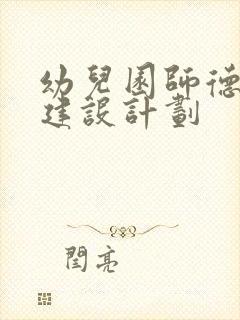 幼兒園師德
建設計劃
閆亮